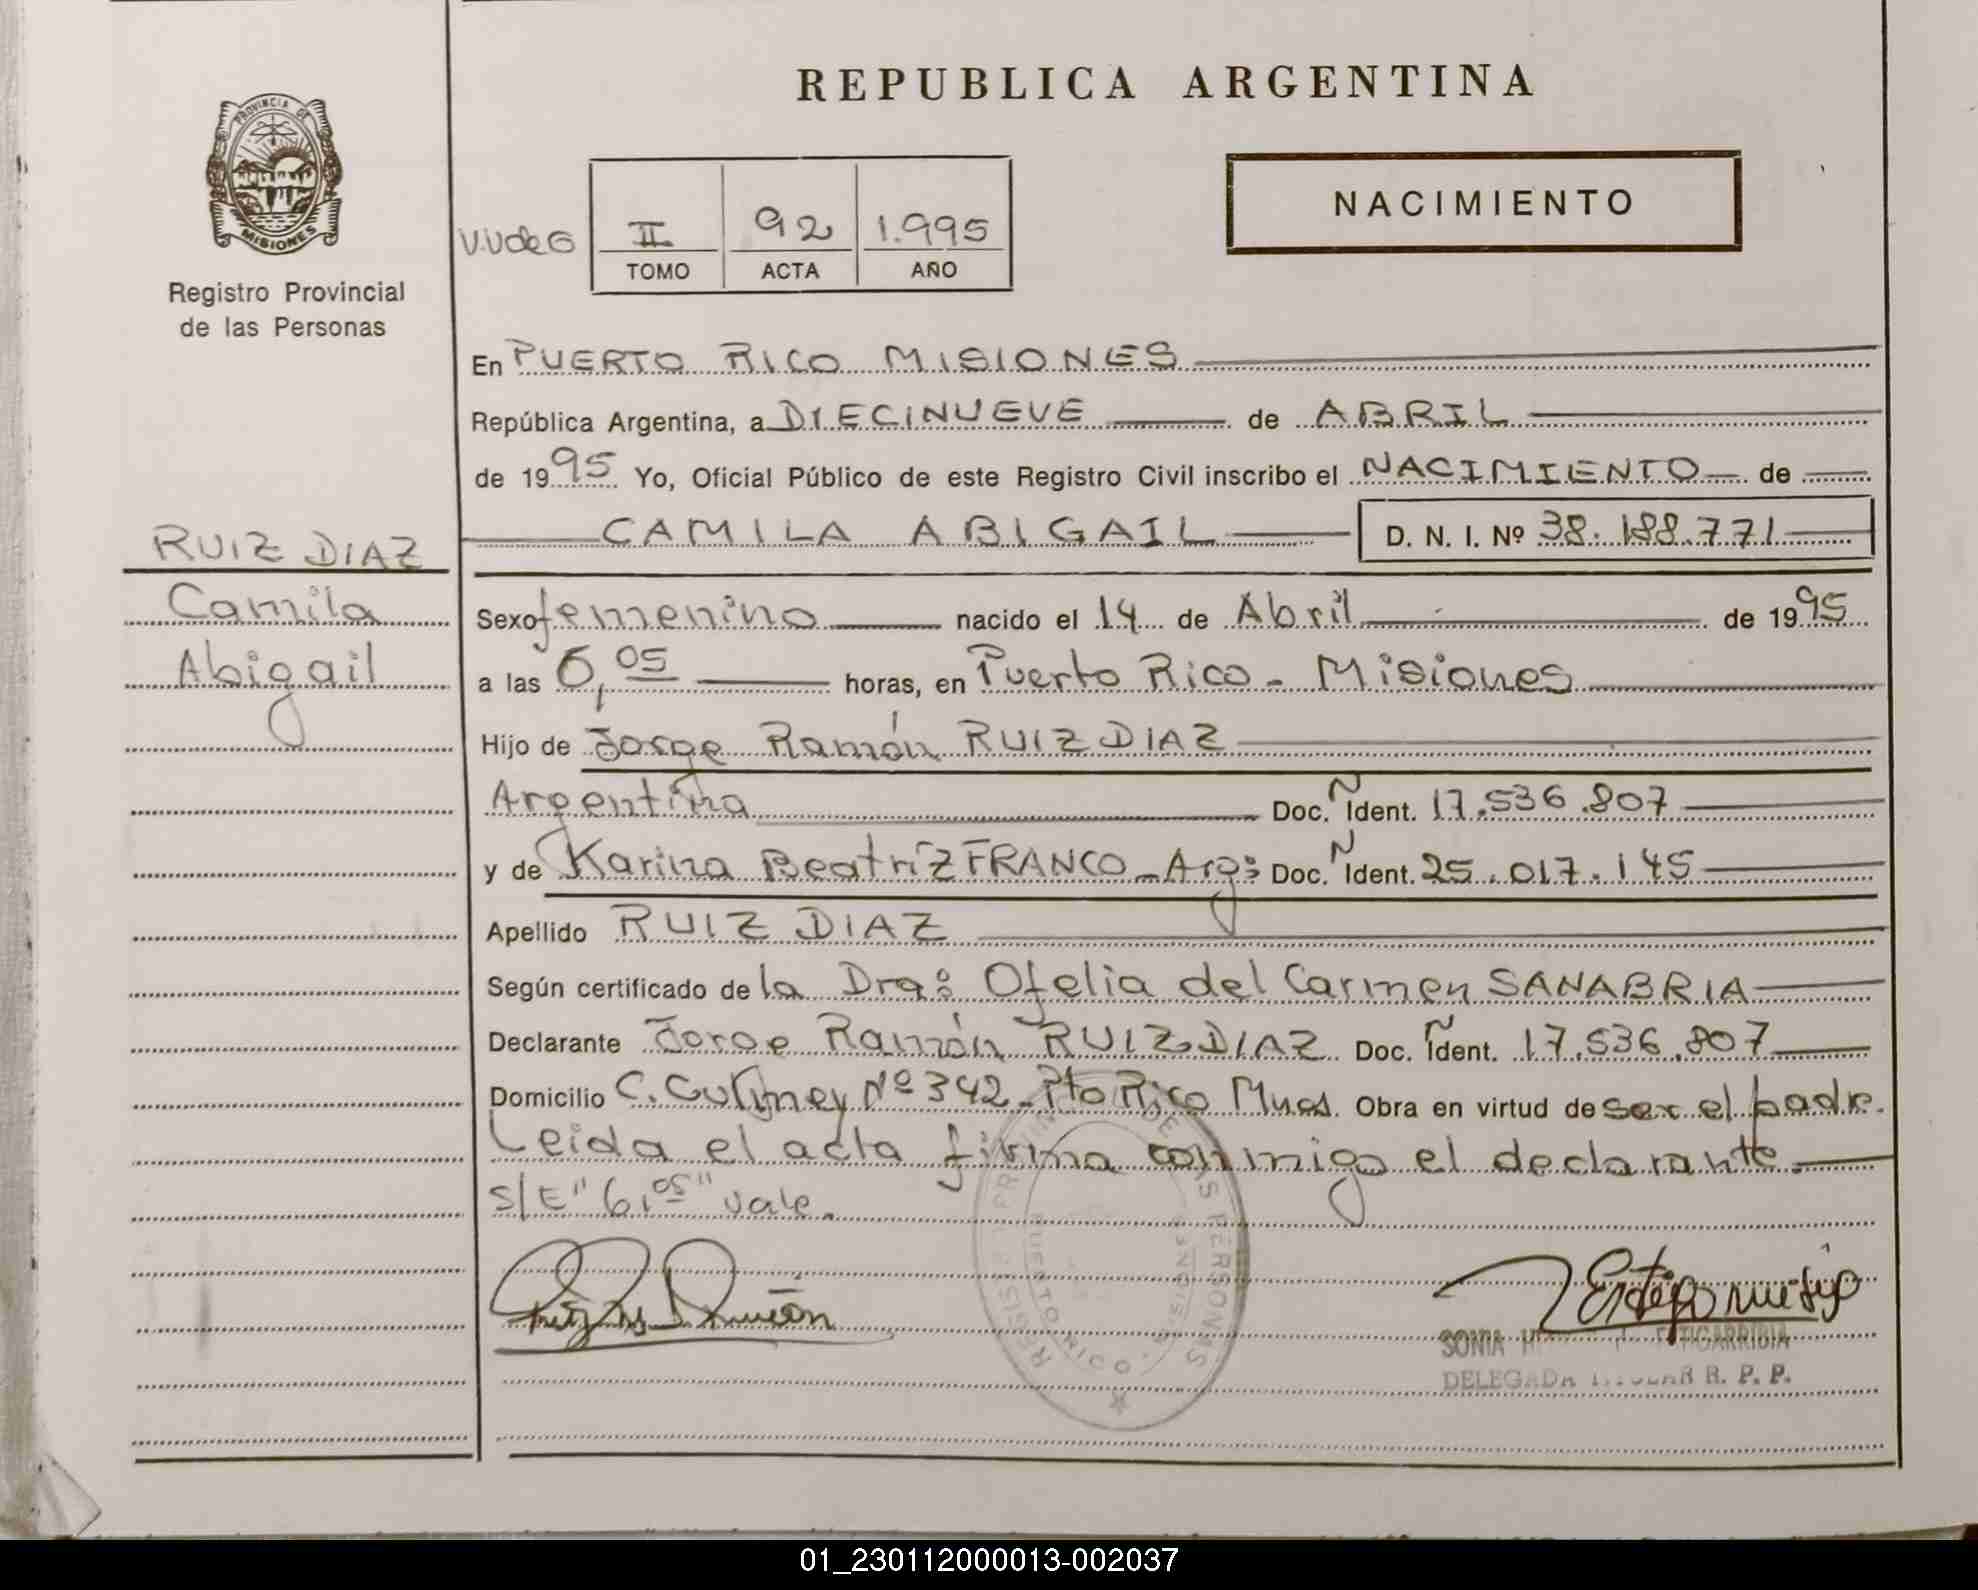 REPUBLICA ARGENTINA
PROVINCIA DE
MISIONES
Registro Provincial
de las Personas
NACIMIENTO
V.V de G
II 92 1.995
TOMO ACTA AÑO
En PUERTO RICO MISIONES
República Argentina, a DIECINUEVE de ABRIL
de 1995 Yo, Oficial Público de este Registro Civil inscribo el NACIMIENTO de
CAMILA ABIGAIL D. N. I. Nº 38.188.771
RUIZ DIAZ
Camila
Abigail
Sexo femenino nacido el 14 de Abril de 1995
a las 6,05 horas, en Puerto Rico - Misiones
Hijo de Jorge Ramón RUIZ DIAZ
Argentina Doc. N Ident. 17.536.807
y de Karina Beatríz FRANCO - Arg: Doc. N Ident. 25.017.145
Apellido RUIZ DIAZ
Según certificado de la Dra: Ofelia del Carmen SANABRIA
Declarante Jorge Ramón RUIZ DIAZ Doc. N Ident. 17.536.807
Domicilio C. Nº 342 - Pto Rico Mnes. Obra en virtud de ser el padre.
Leida el acta firma conmigo el declarante.
S/E "6,05" vale.
REGISTRO PROVINCIAL DE LAS PERSONAS
PUERTO RICO MISIONES
SONIA
DELEGADA TITULAR R. P. P.
01_230112000013-002037